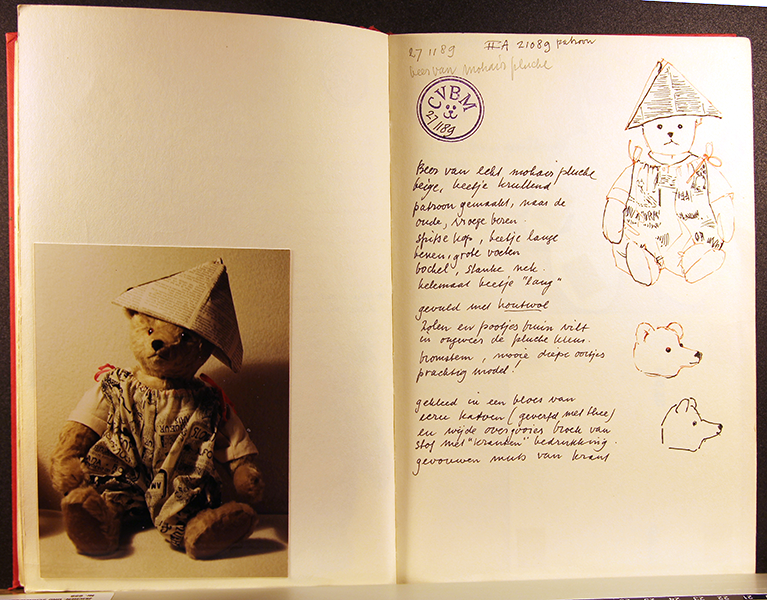 27 11 89 II A 21089 patroon
beer van mohair pluche
CVBM
27 1189
Beer van echt mohair pluche
beige, beetje krullend
patroon gemaakt, naar de
oude, vroege beren.
spitse kop, beetje lange
benen, grote voeten
bochel, slanke nek.
helemaal beetje "lang"
gevuld met houtwol
Zolen en pootjes bruin vilt
in ongeveer de pluche kleur.
bromstem, mooie diepe oortjes
prachtig model!
gekleed in een bloes van
ecru katoen (geverfd met thee)
en wijde overgooier broek van
stof met "kranten" bedrukking.
gevouwen muts van krant